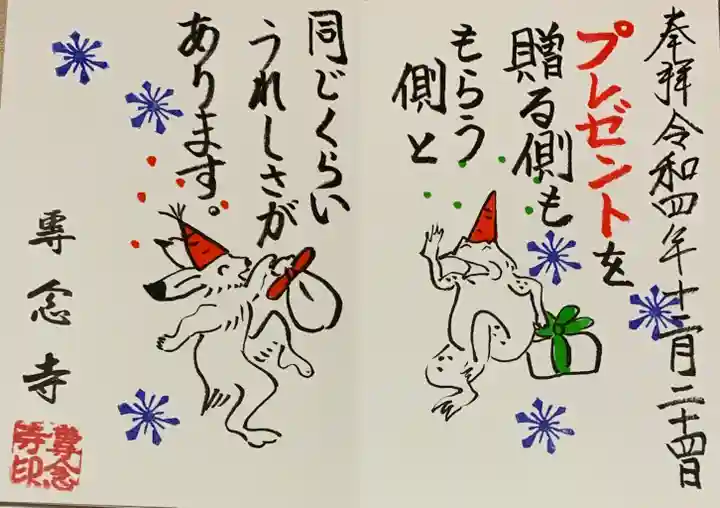 奉拝令和四年十二月二十四日
プレゼントを
贈る側も
もらう
側と
同じくらい
うれしさが
あります。
専念寺
専念
寺印